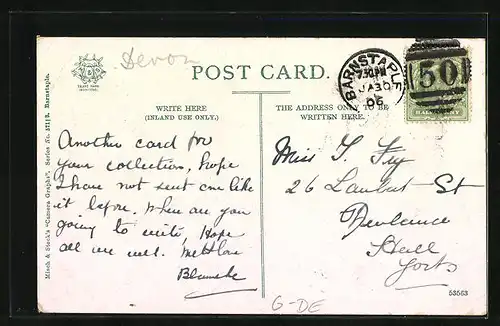 Devon
POST CARD.
WRITE HERE
(INLAND USE ONLY.)
THE ADDRESS ONLY TO BE
WRITTEN HERE.
BARNSTAPLE
7.30 PM
JA 30
06
50
HALFPENNY
Misch & Stock's "Camera Graphs". Series No. Barnstaple.
TRADE MARK
Another card for
your collection, hope
I have not sent one like
it before. When are you
going to write, Hope
all are well. With love
Blanche
Miss T. Fry
26 Lambert St
Newland
Hull
Yorks
53563
G-DE